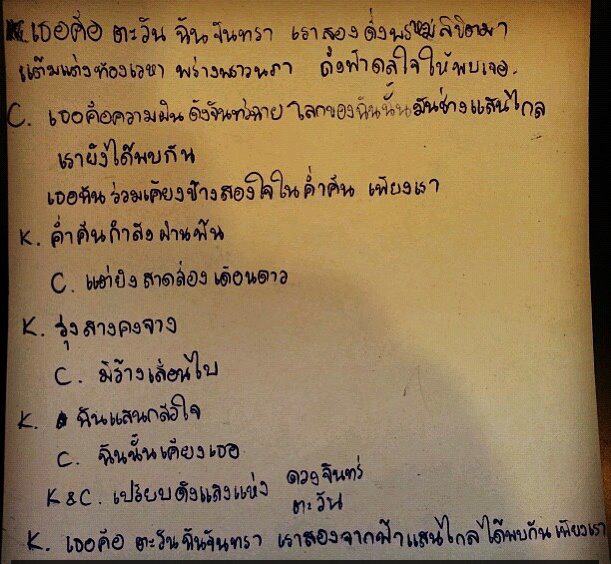 K. เธอคือ ตะวัน ฉันจันทรา เราสอง ดั่งพรหมลิขิตมา
แต้มแต่งท้องเวหา พร่างพราวนภา ดั่งฟ้าดลใจให้พบเจอ.
C. เธอคือความฝัน ดังจันทร์ฉาย โลกของฉันนั้นมันช่างแสนไกล
เรายังได้พบกัน
เธอฉัน ร่วมเคียงข้างสองใจในค่ำคืน เพียงเรา
K. ค่ำคืนกำลังผ่านพ้น
C. แต่ยังสาดส่อง เดือนดาว
K. รุ่งสางคงจาง
C. มิร้างเลื่อนไป
K. ฉันแสนกลัวใจ
C. ฉันนั้นเคียงเธอ
K&C. เปรียบดังแสงแห่ง ดวงจันทร์
ตะวัน
K. เธอคือ ตะวันฉันจันทรา เราสองจากฟ้าแสนไกลได้พบกัน เพียงเรา